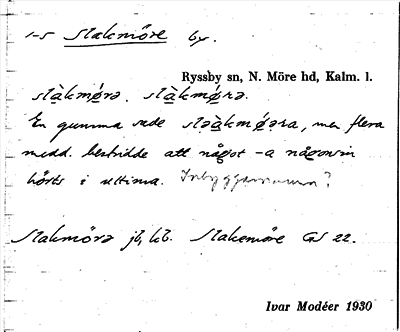 1-5 Slakmöre by.
Ryssby sn, N. Möre hd, Kalm. l.
slàkmø̀rə. slàkmǿrə.
En gumma sade sləàkmǿəra, men flera
medd. bestridde att något -a någonsin
hörts i ultima. Inbyggarnamn?
Slakmöra jb, kb. Slakemöre GS 22.
Ivar Modéer 1930